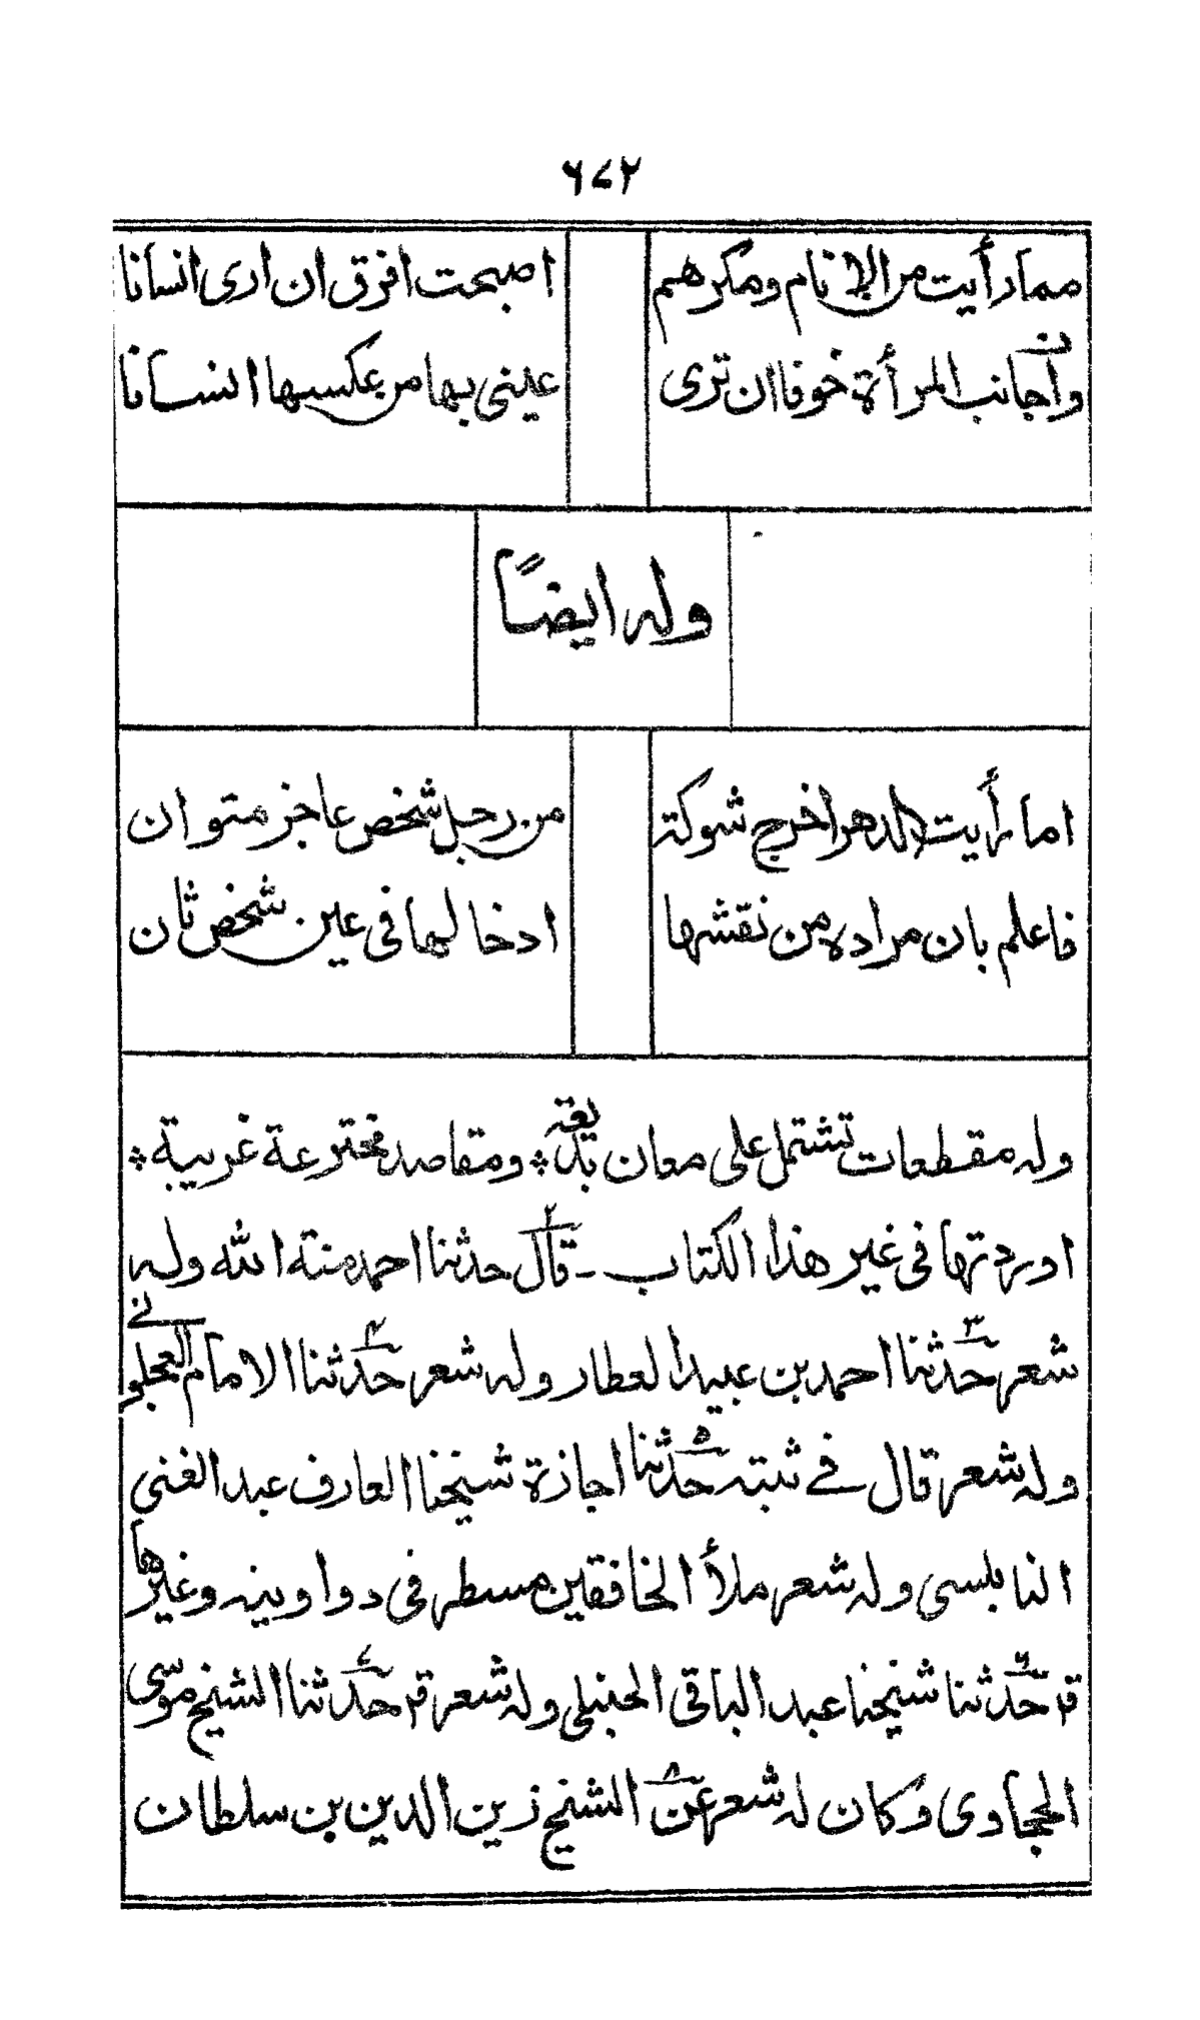 ٦٧٢
مما رأيت من الانام ومكرهم اصبحت افرق ان ارى انسانا
وأجانب المرأة خوفا ان ترى عيني بها من عكسها انسانا
وله ايضاً
اما رأيت الدهر اخرج شوكة من رجل شخص عاجز متوان
فاعلم بان مراده من نقشها ادخالها في عين شخص ثان
وله مقطعات تشتمل على معان بديعة * ومقاصد مخترعة غريبة *
اوردتها في غير هذا الكتاب - قال حدثنا احمد منة الله وله
شعر حدثنا احمد بن عبيد العطار وله شعر حدثنا الامام العجلوني
وله شعر قال في ثبته حدثنا اجازة شيخنا العارف عبد الغني
النابلسي وله شعر ملأ الخافقين مسطر في دواوينه وغيرها
قر حدثنا شيخنا عبد الباقي الحنبلي وله شعر قر حدثنا الشيخ موسى
الحجاوي وكان له شعر عن الشيخ زين الدين بن سلطان